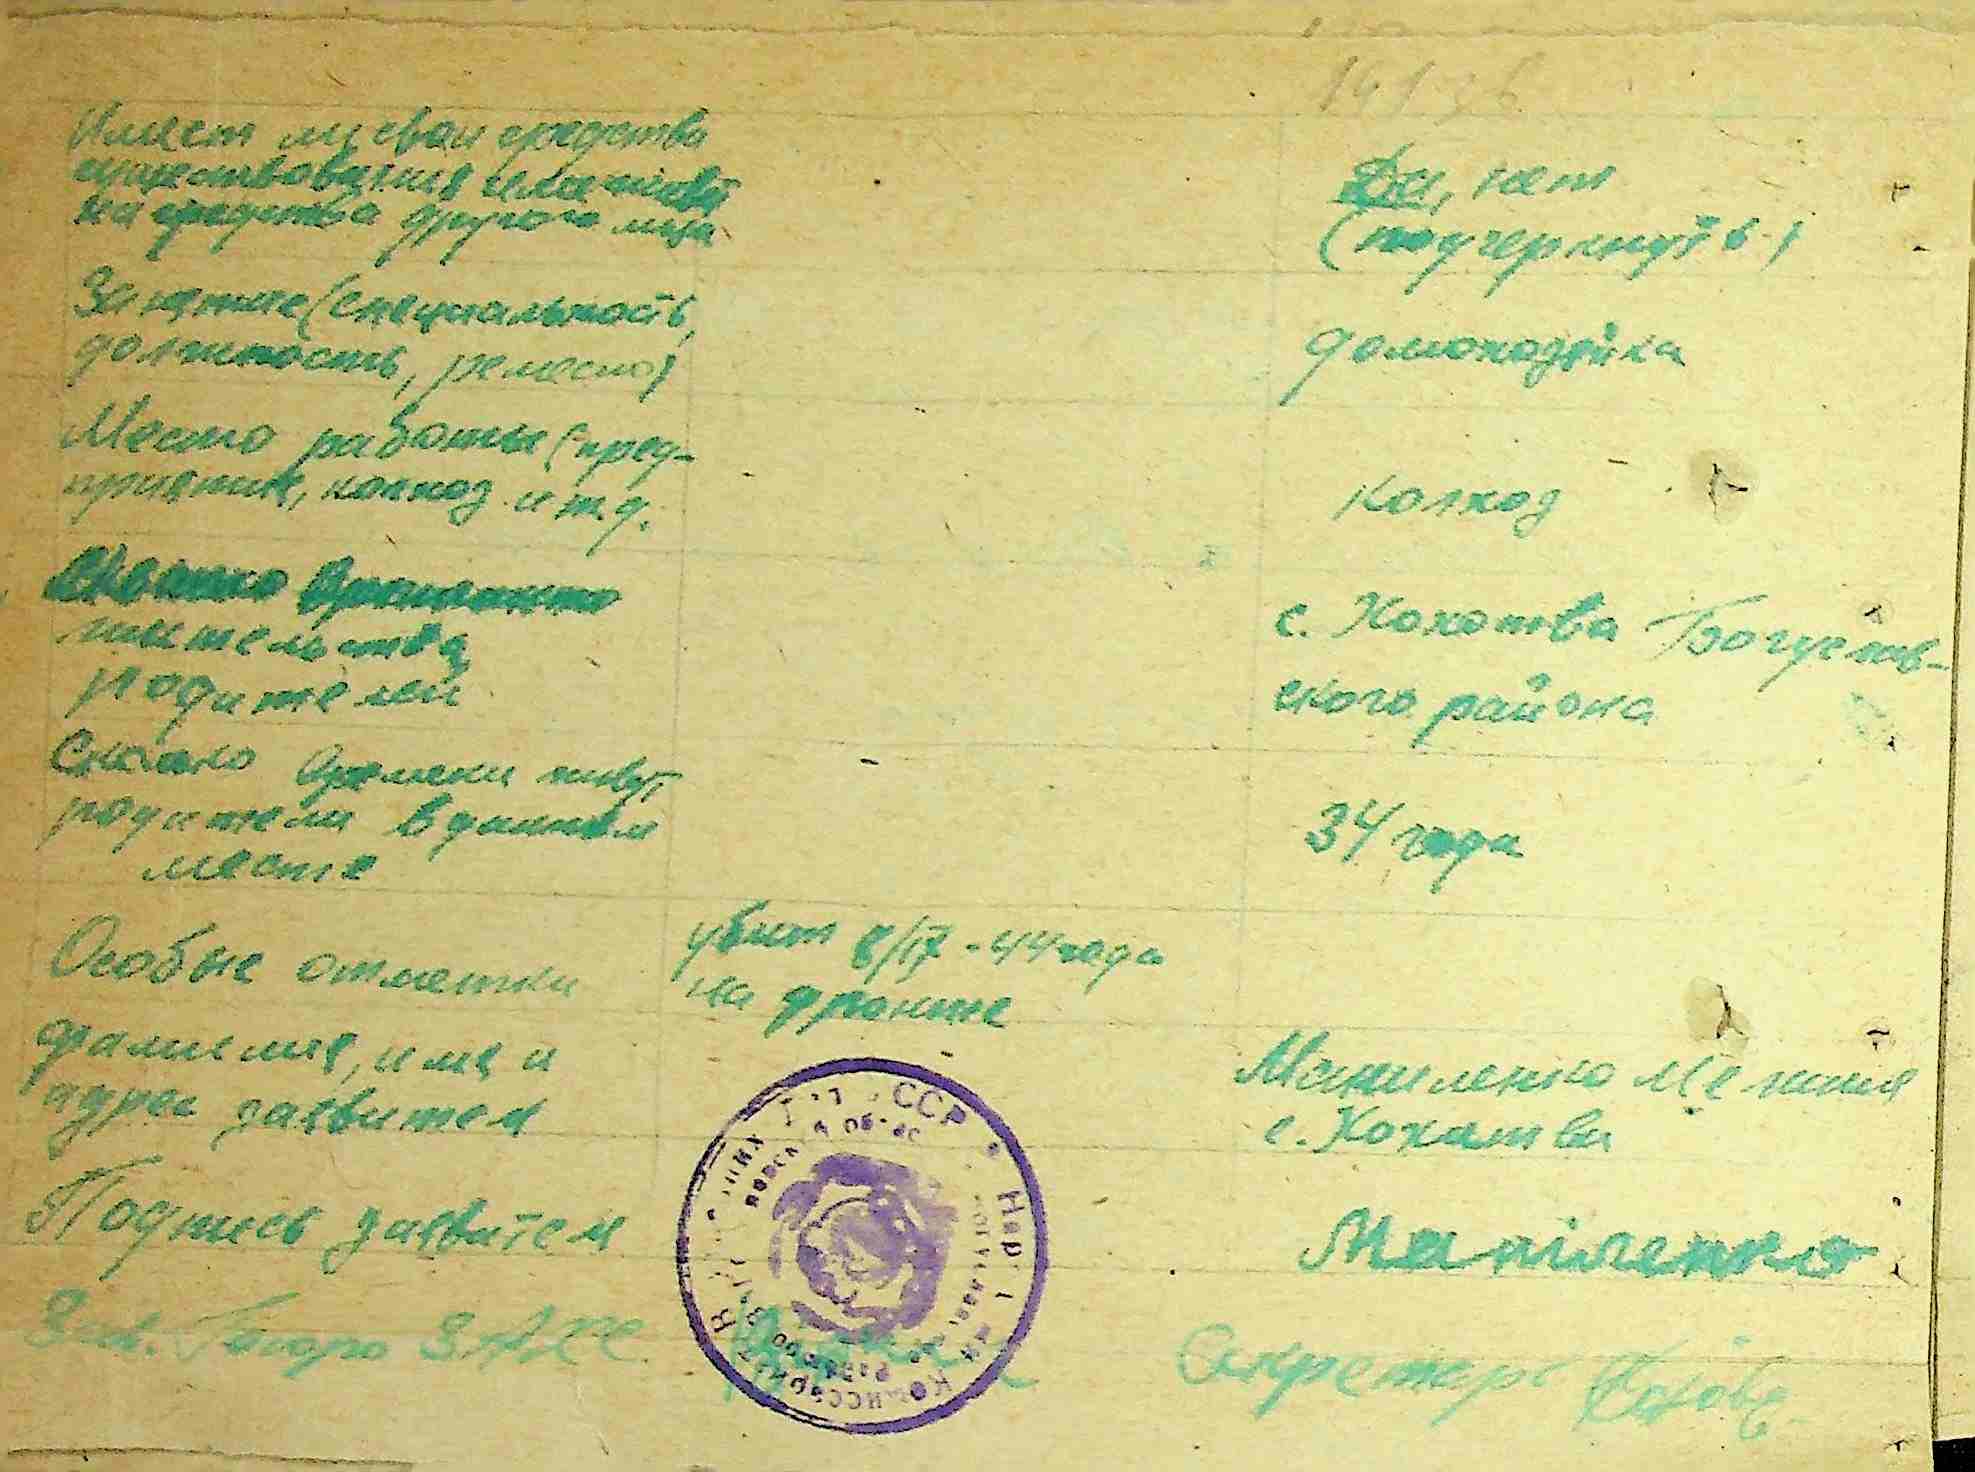 Имеет ли свои средства
существования или живёт
на средства другого лица
Да, нет
(подчеркнуть)
Занятие (специальность,
должность, ремесло)
домохозяйка
Место работы (пред-
приятие, колхоз и т.д.
колхоз
жительства
родителей
с. Хохотва Богуслав-
ского района
Сколько времени живут
родители в данном
месте
34 года
Особые отметки
убит 8/IV-44 года
на фронте
фамилия, имя и
адрес заявителя
Маниленко
с. Хохотва
Подпись заявителя
Маніленко
Зав. Бюро ЗАГС
Секретарь